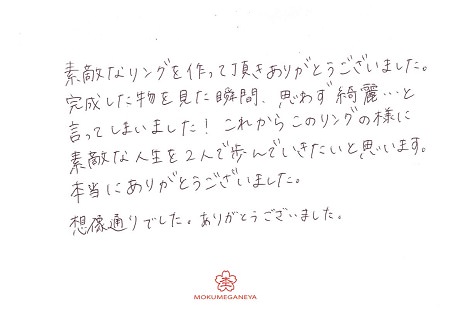 素敵なリングを作って頂きありがとうございました。
完成した物を見た瞬間、思わず綺麗…と
言ってしまいました！これからこのリングの様に
素敵な人生を2人で歩んでいきたいと思います。
本当にありがとうございました。
想像通りでした。ありがとうございました。
MOKUMEGANEYA